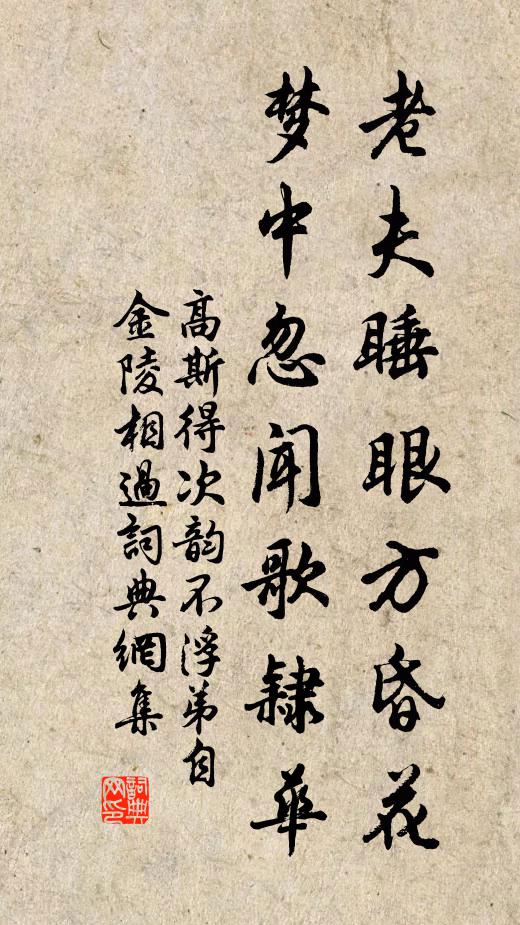 老夫睡眼方昏花
梦中忽闻歌隸華
高斯得次韵不浮弟自
金陵相過詞典網集
詞典
网印